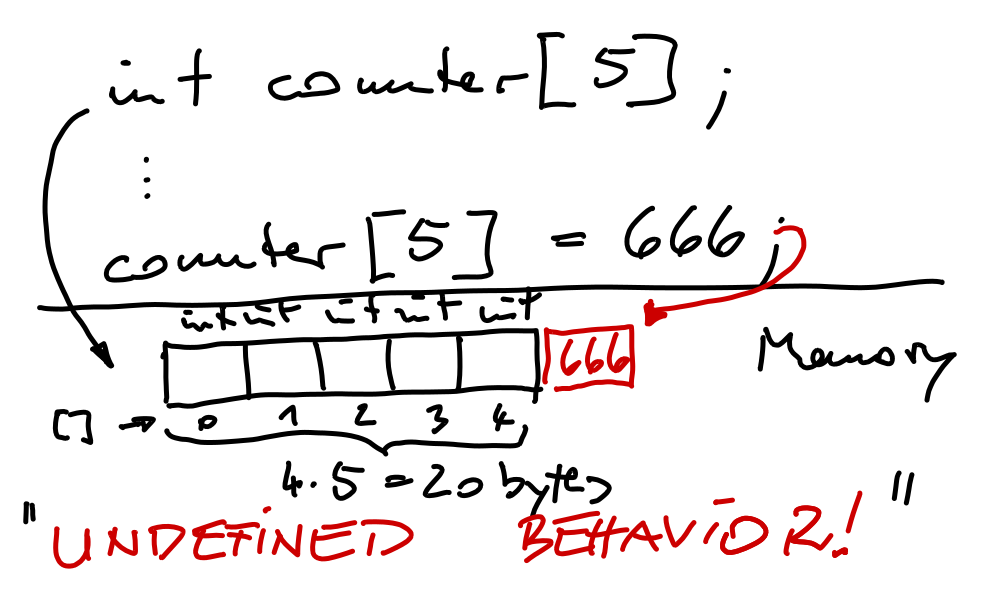 int counter[5];
⋮
counter[5] = 666;
int int int int int
666
Memory
[] → 0 1 2 3 4
4·5=20 bytes
"UNDEFINED BEHAVIOR!"